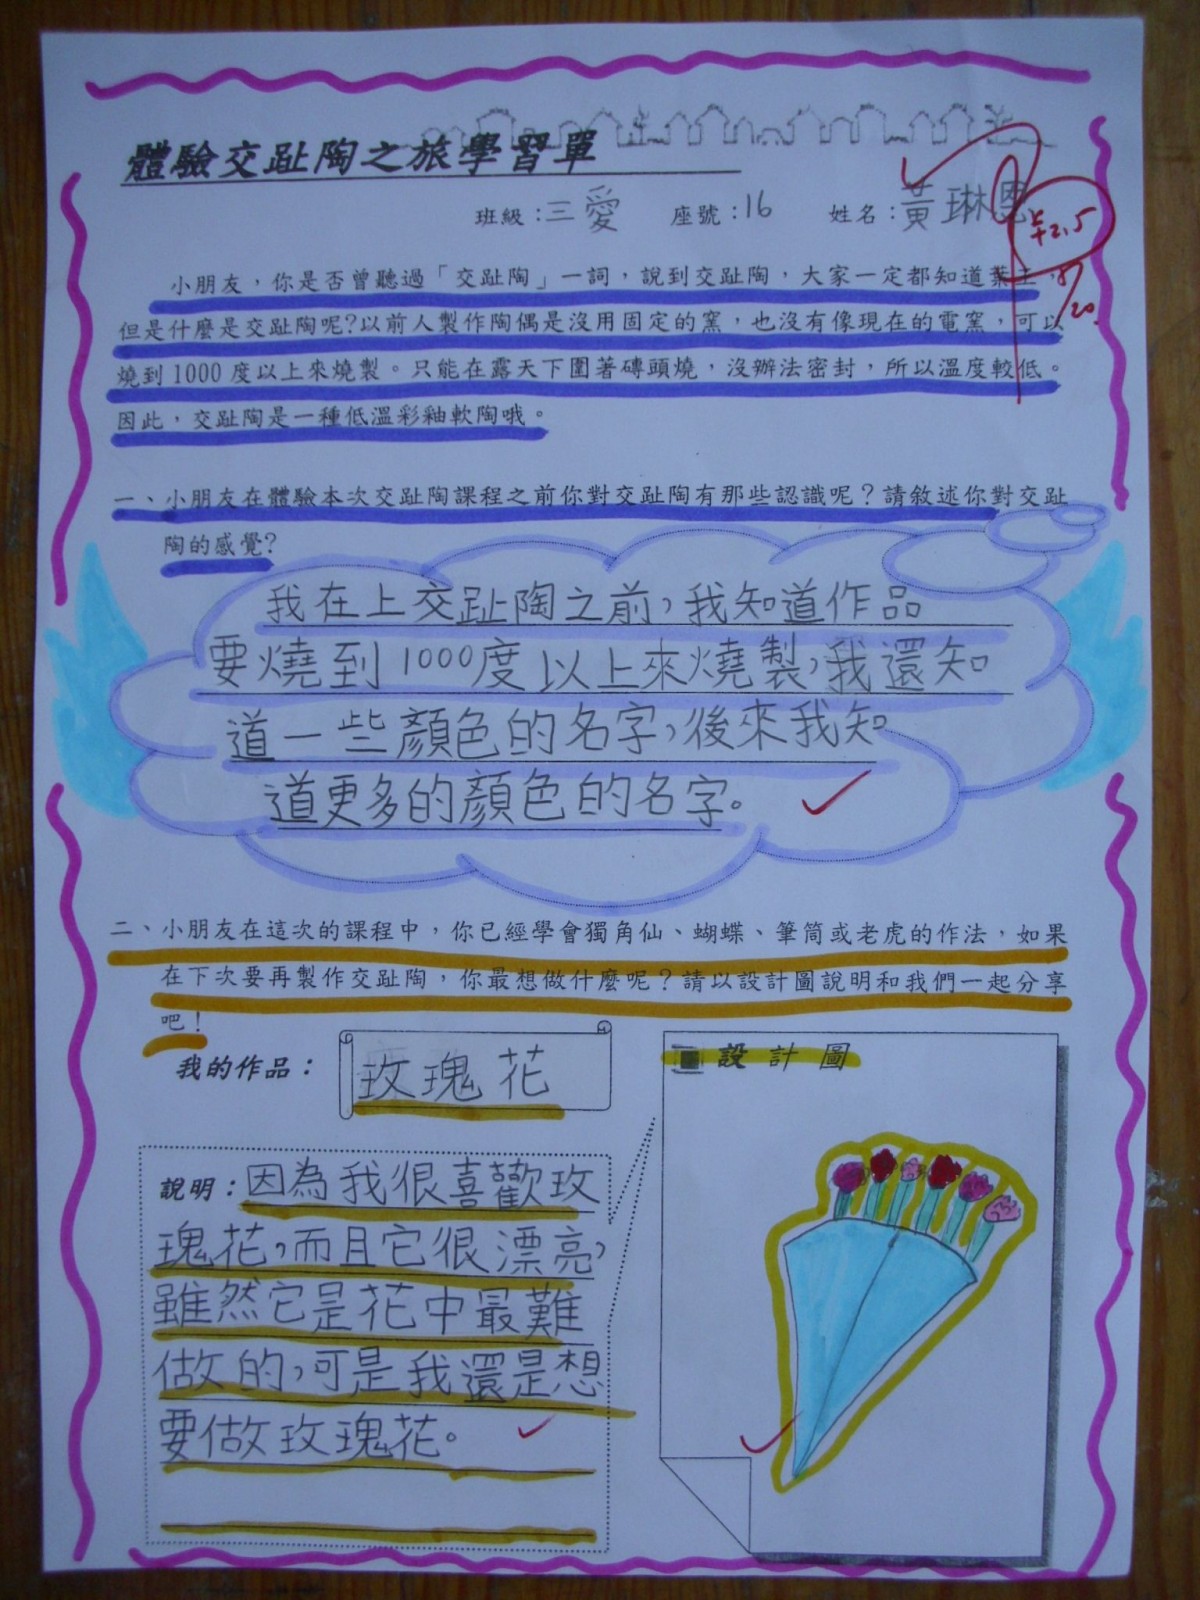 體驗交趾陶之旅學習單
班級：三愛 座號：16 姓名：黃琳恩
小朋友，你是否曾聽過「交趾陶」一詞，說到交趾陶，大家一定都知道葉王，
但是什麼是交趾陶呢?以前人製作陶偶是沒用固定的窯，也沒有像現在的電窯，可以
燒到1000度以上來燒製。只能在露天下圍著磚頭燒，沒辦法密封，所以溫度較低。
因此，交趾陶是一種低溫彩釉軟陶哦。
一、小朋友在體驗本次交趾陶課程之前你對交趾陶有那些認識呢？請敘述你對交趾
陶的感覺?
我在上交趾陶之前，我知道作品
要燒到1000度以上來燒製，我還知
道一些顏色的名字，後來我知
道更多的顏色的名字。
二、小朋友在這次的課程中，你已經學會獨角仙、蝴蝶、筆筒或老虎的作法，如果
在下次要再製作交趾陶，你最想做什麼呢？請以設計圖說明和我們一起分享
吧！
我的作品：玫瑰花
設計圖
說明：因為我很喜歡玫
瑰花，而且它很漂亮，
雖然它是花中最難
做的，可是我還是想
要做玫瑰花。